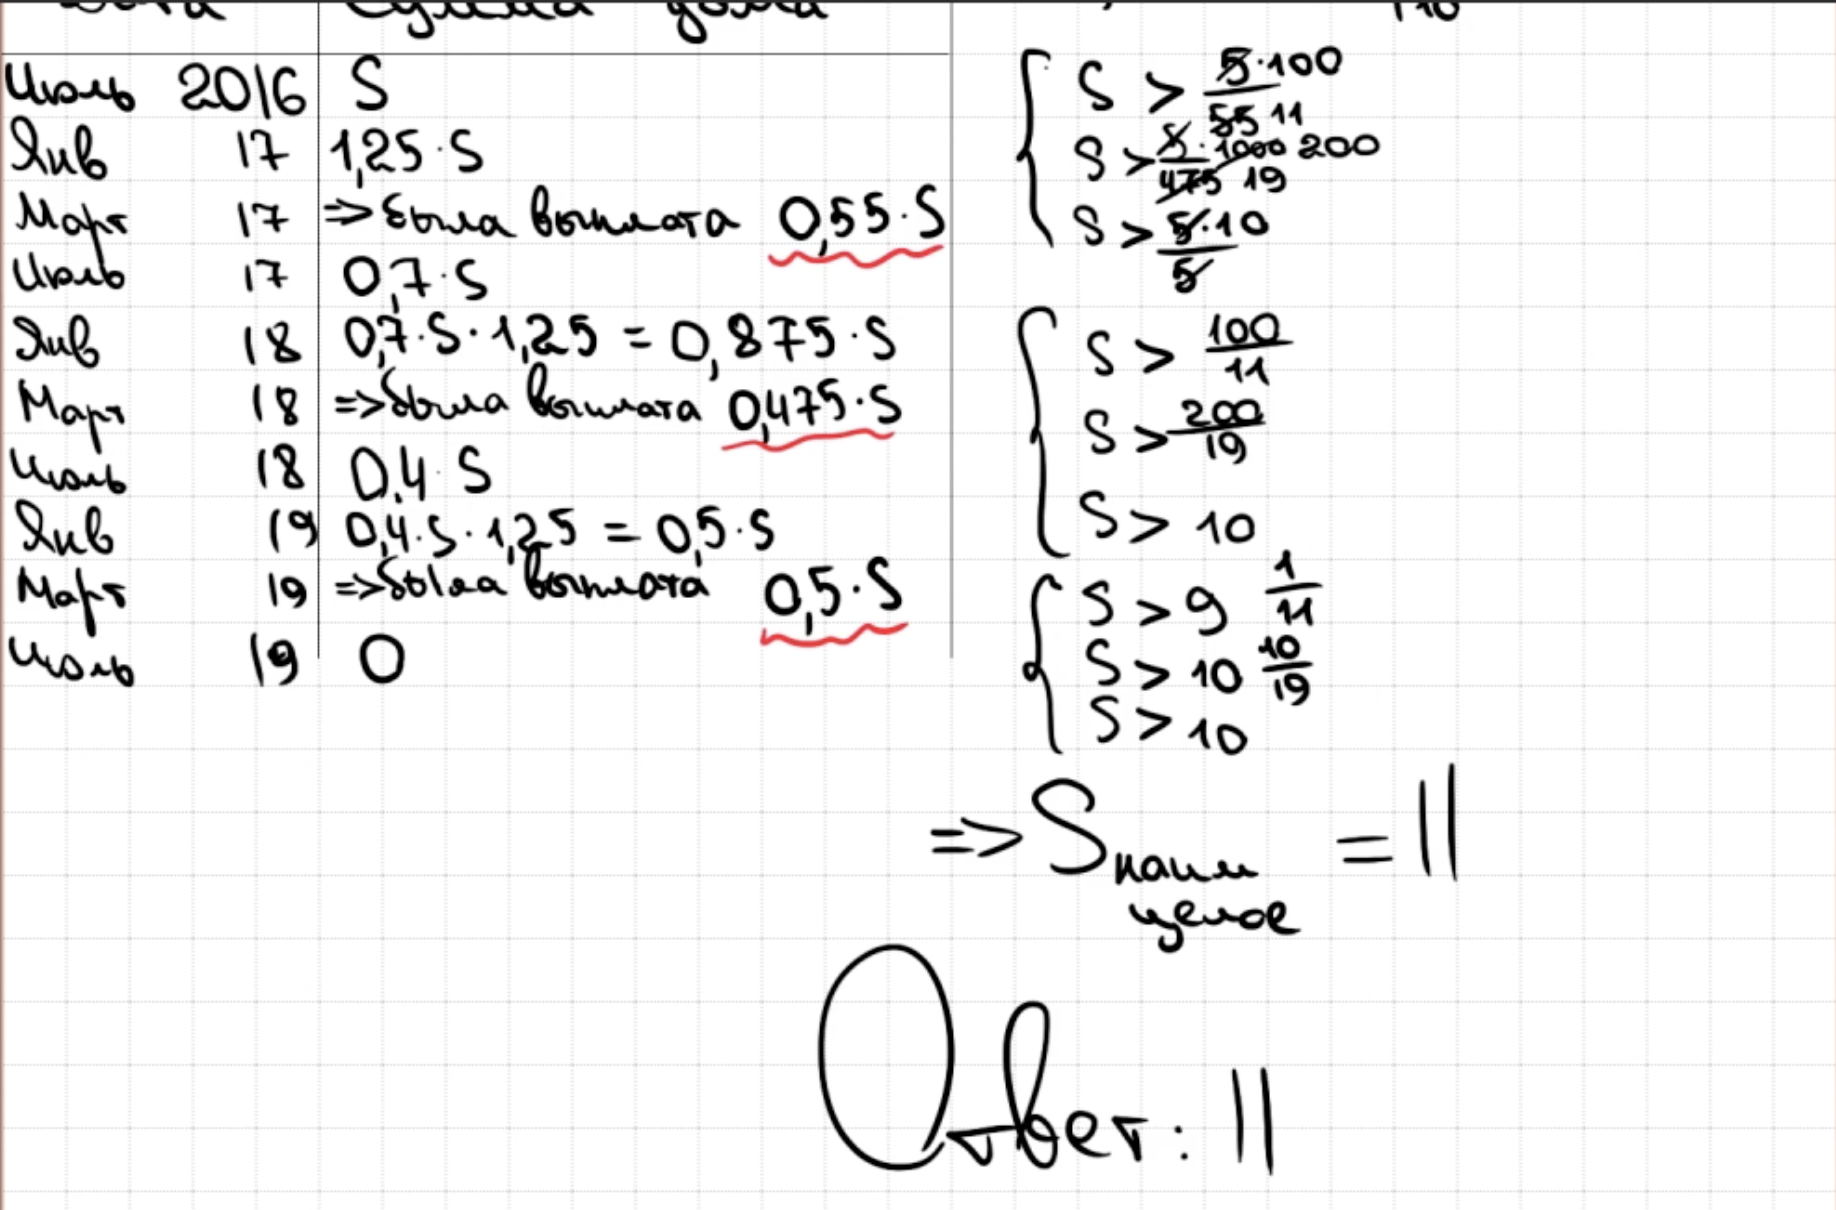 Сумма долга
Июль 2016 S
Янв 17 1,25·S
Март 17 => была выплата 0,55·S
Июль 17 0,7·S
Янв 18 0,7·S·1,25 = 0,875·S
Март 18 => была выплата 0,475·S
Июль 18 0,4·S
Янв 19 0,4·S·1,25 = 0,5·S
Март 19 => была выплата 0,5·S
Июль 19 0
S > 5·100/55 11
S > 5·1000 200/475 19
S > 5·10/5
S > 100/11
S > 200/19
S > 10
S > 9 1/11
S > 10 10/19
S > 10
=> S наим целое = 11
Ответ: 11